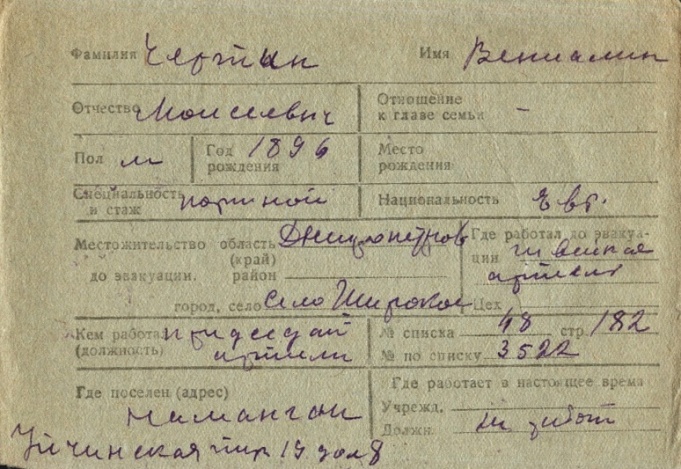 Фамилия Чертын Имя Вениамин
Отчество Моисеевич Отношение к главе семьи -
Пол м Год рождения 1896 Место рождения
Специальность и стаж портной Национальность Евр.
Местожительство область Днепропетров Где работал до эвакуа-
(край) ции швейная
до эвакуации. район артель
город, село село Широкое Цех
Кем работал председат № списка 48 стр. 182
(должность) артели № по списку 3522
Где поселен (адрес) Где работает в настоящее время
Наманган Учрежд.
Должн. не работ
Уйчинская 19